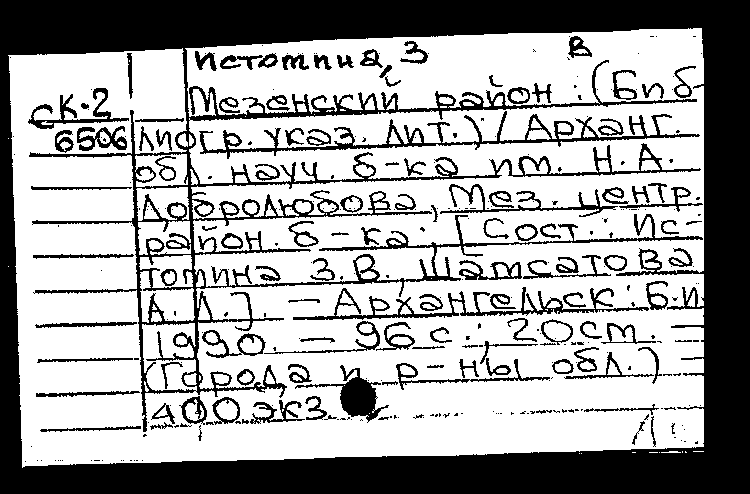 Истомина, З В
Мезенский район : (Биб-
СК-2
6506 лиогр. указ. лит.) / Арханг.
обл. науч. б-ка им. Н.А.
Добролюбова, Мез. центр.
район. б-ка ; [Сост.: Ис-
томина З.В., Шатсатова
А.Л.]. - Архангельск : Б.и.
1990. - 96 с. ; 20см. -
(Города и р-ны обл.) -
400 экз